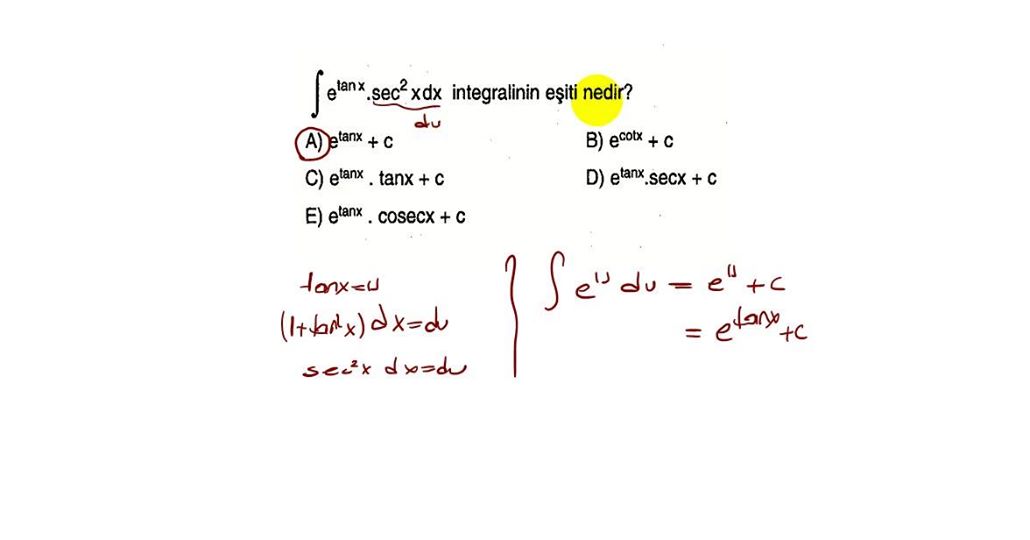 ∫ e^tanx . sec² x dx integralinin eşiti nedir?
du
A) e^tanx + c
B) e^cotx + c
C) e^tanx . tanx + c
D) e^tanx.secx + c
E) e^tanx . cosecx + c
tanx=u
(1+tan²x) dx=du
sec²x dx=du
∫ e^u du = e^u + c
= e^tanx +c